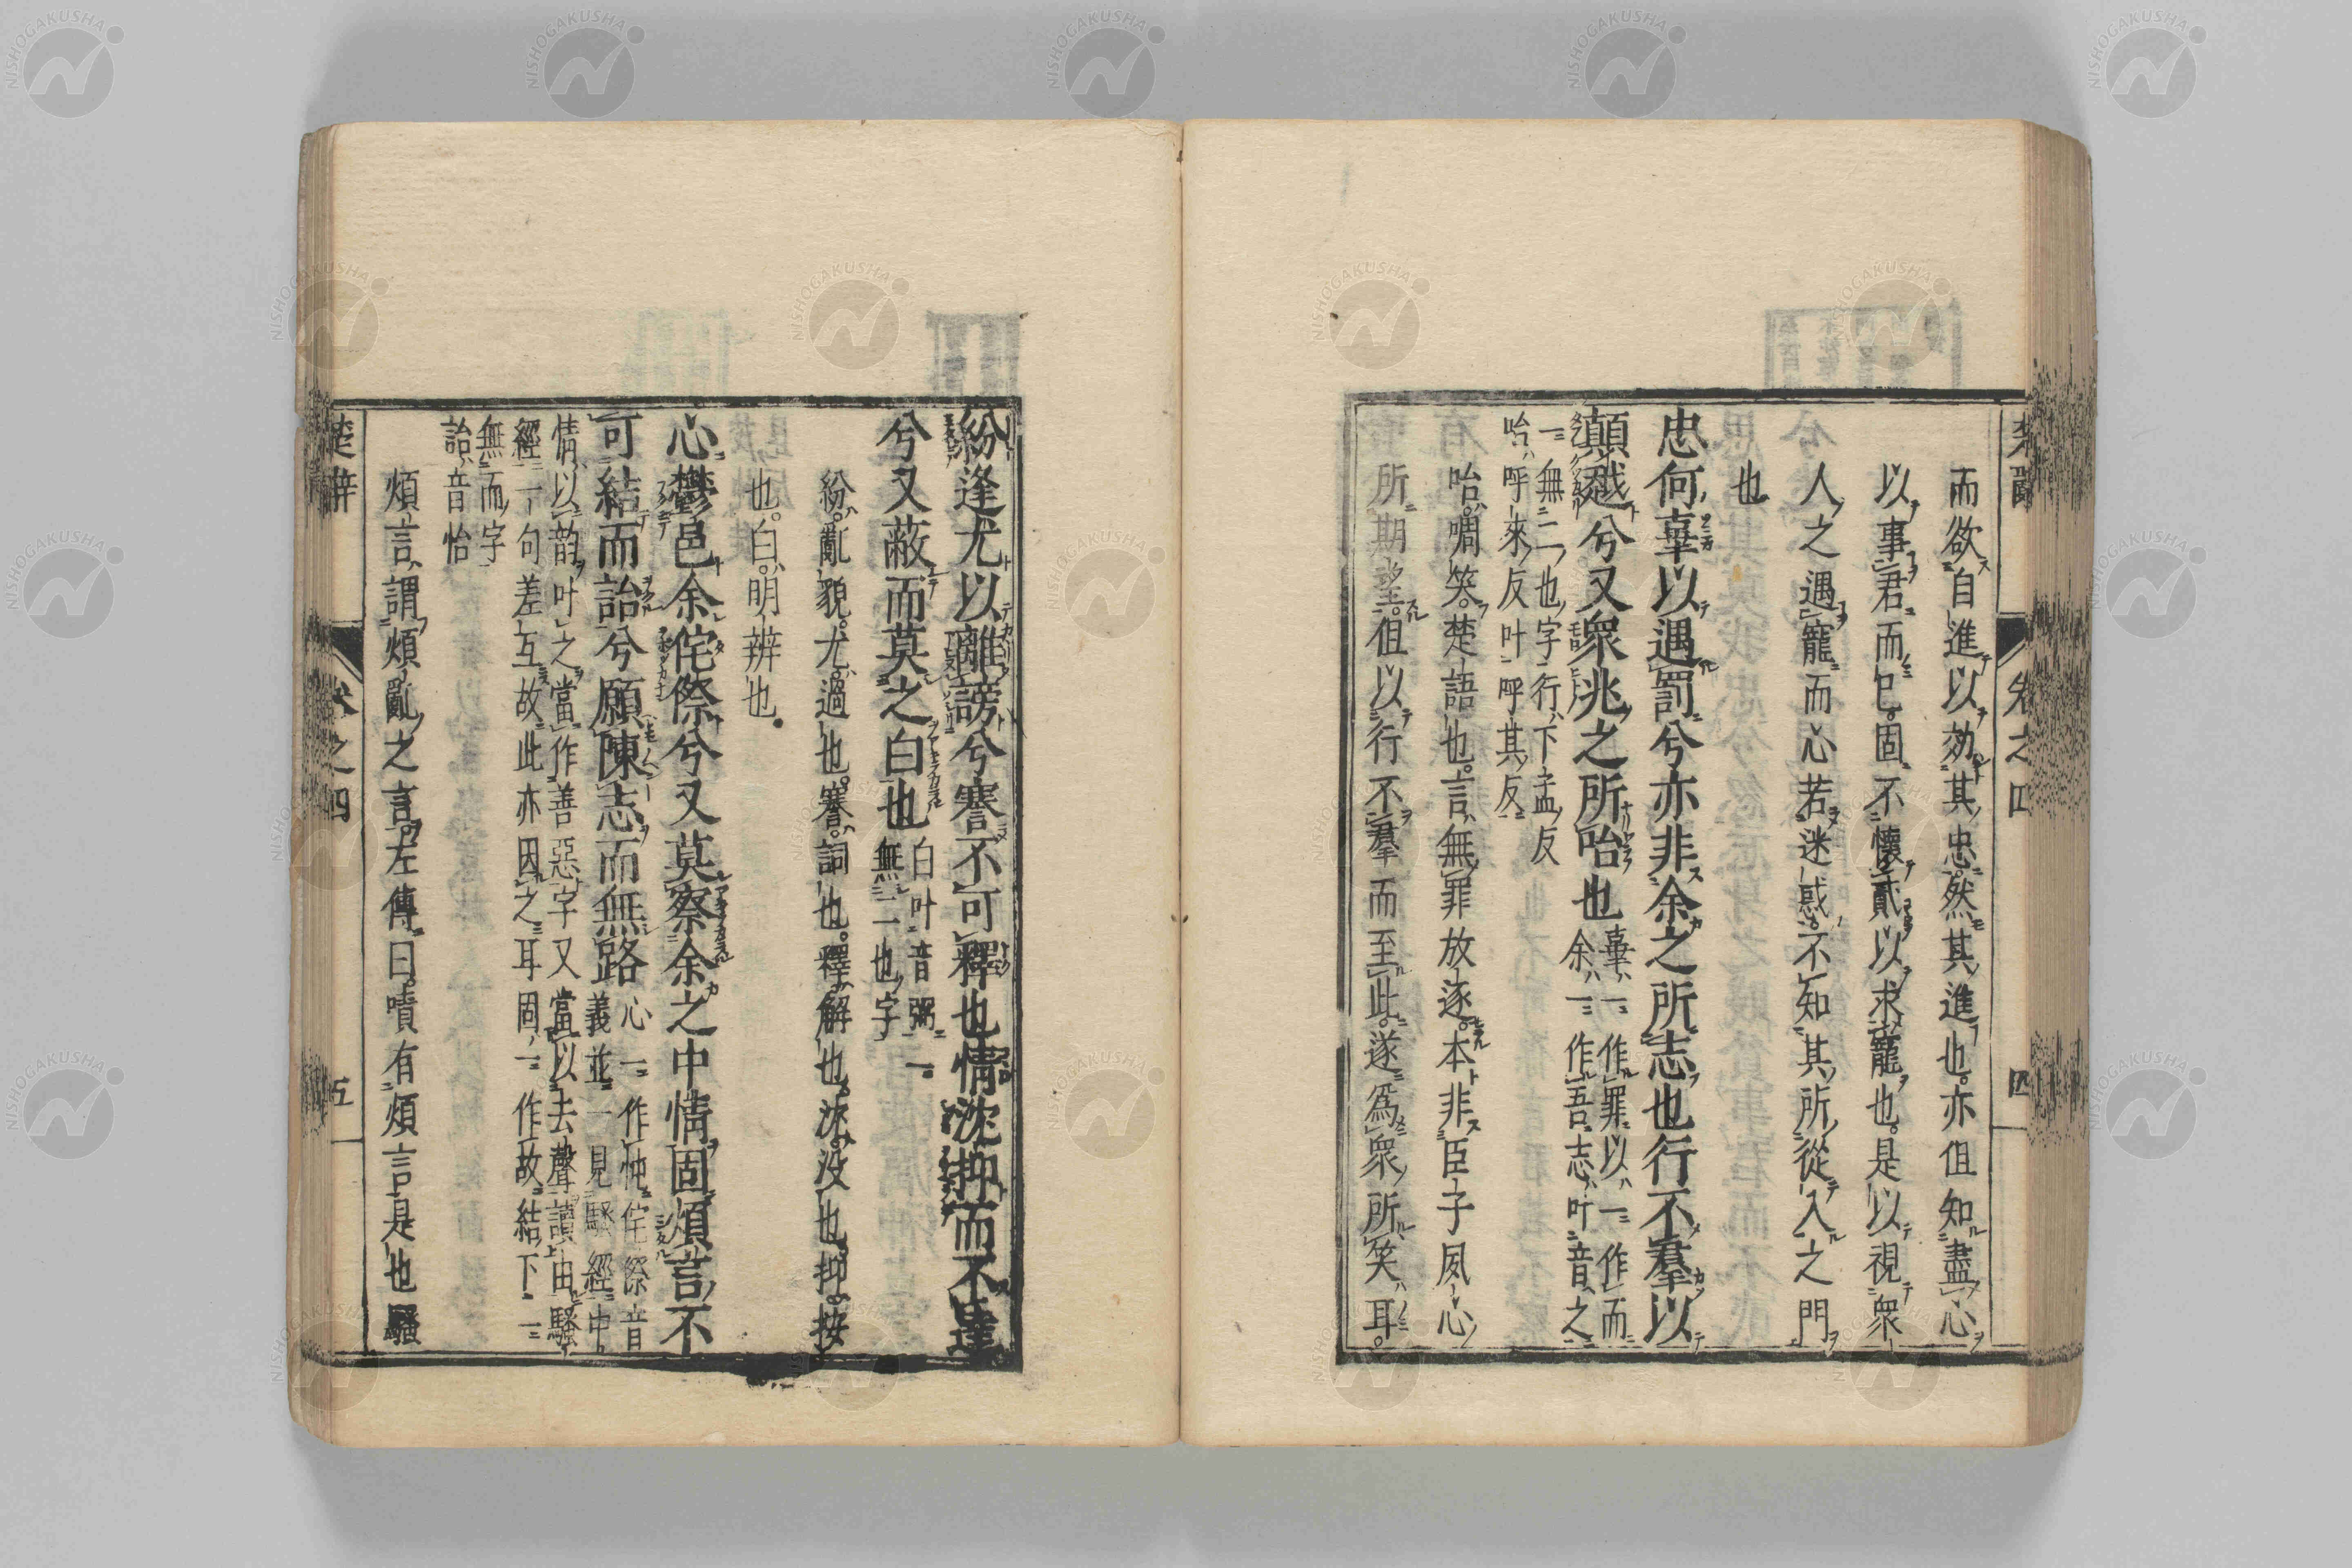 楚辭
卷之四
四
而欲自進以効其忠。然其進也。亦但知盡心
以事君而已。固不懷貳以求寵也。是以視衆
人之遇寵而心若迷惑。不知其所從入之門
也
忠何辜以遇罰兮亦非余之所志也行不羣以
顛越兮又衆兆之所咍也
辜一作罪以一作而
余一作吾志叶音之
一無二也字行下孟反
咍呼來反叶呼其反
咍啁笑。楚語也。言無罪放逐。本非臣子夙心
所期望。但以行不羣而至此。遂為衆所笑耳。
紛逢尤以離謗兮謇不可釋也情沈抑而不達
兮又蔽而莫之白也
白叶音弼一
無二也字
紛亂貌。尤過也。謇詞也。釋解也沈没也抑按
也。白明辨也。
心鬱邑余侘傺兮又莫察余之中情固煩言不
可結而詒兮願陳志而無路
心一作忡侘傺音
義並一見騷經中
情以韵叶之當作善惡字又當以去聲讀由騷
經一句差互故此亦因之耳固一作故結下一
無而字
詒音怡
煩言謂煩亂之言。左傳曰。嘖有煩言是也騷
楚辭
卷之四
五
NISHOGAKUSHA